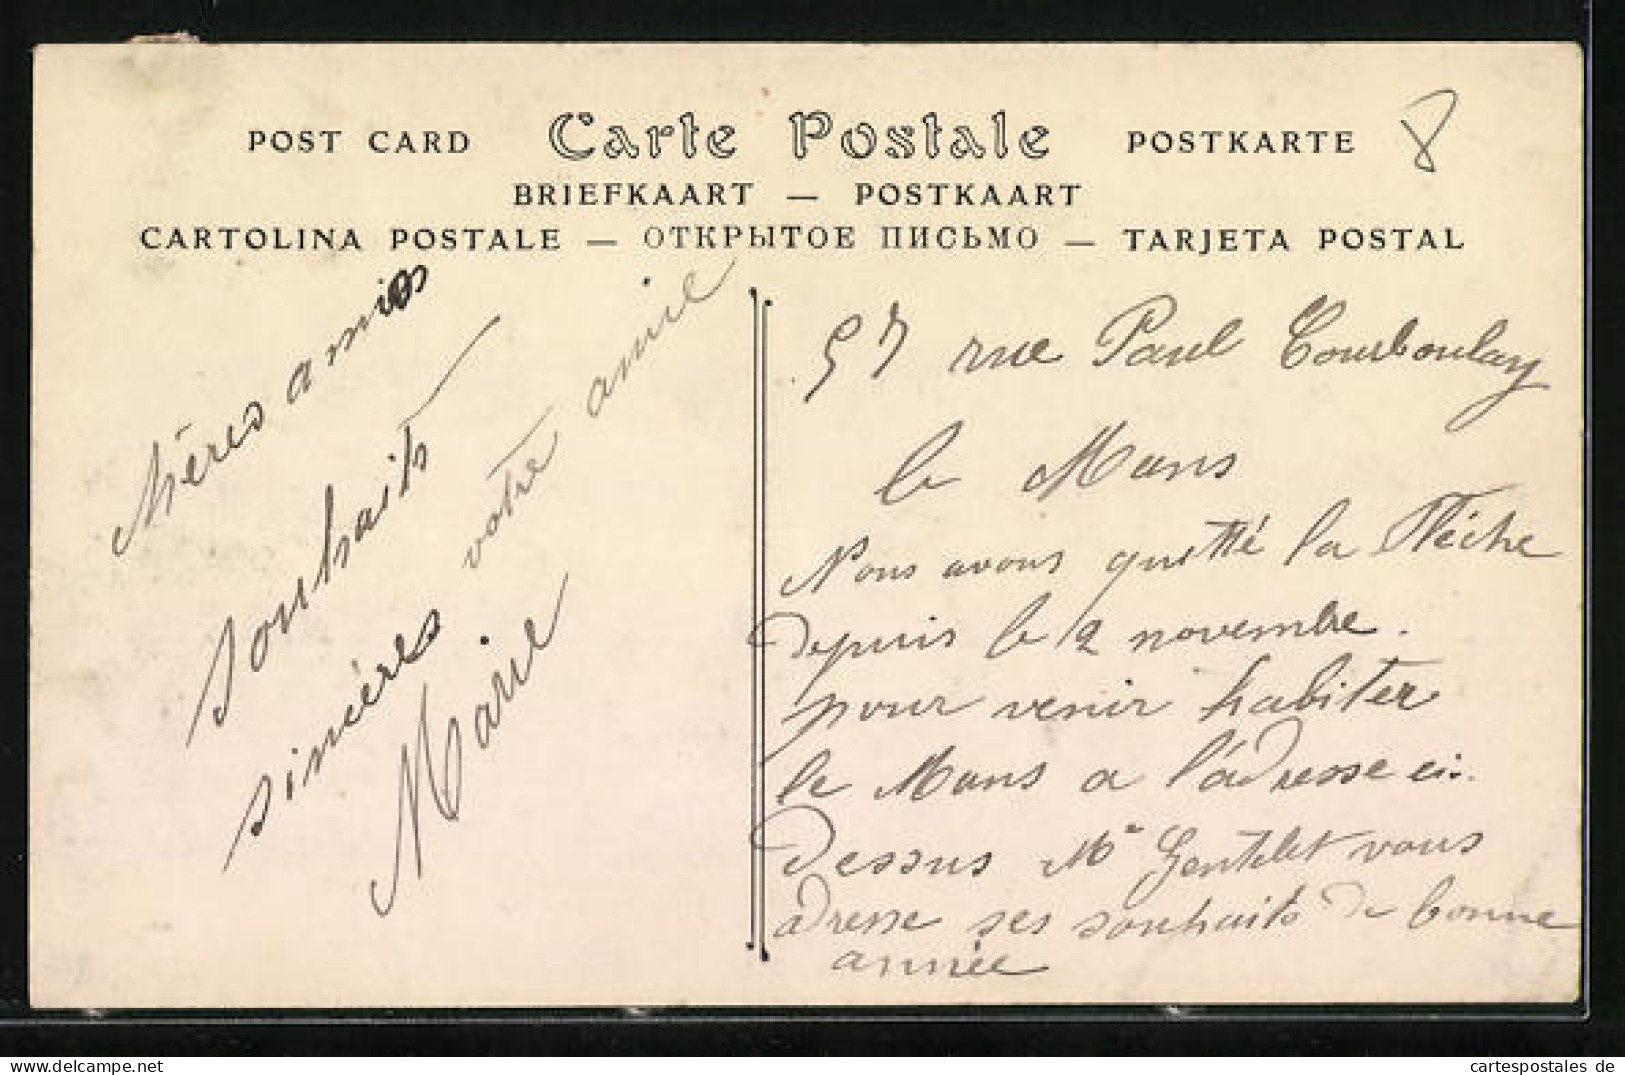 POST CARD Carte Postale POSTKARTE 8
BRIEFKAART — POSTKAART
CARTOLINA POSTALE — ОТКРЫТОЕ ПИСЬМО — TARJETA POSTAL
amies
souhaits
sincères
votre amie
Marie
57 rue Paul Courboulay
le Mans
Nous avons quitté la Flèche
depuis le 2 novembre.
pour venir habiter
le Mans a l'adresse ci-
dessus Mr Gentilet vous
adresse ses souhaits de bonne
année
cartespostales de